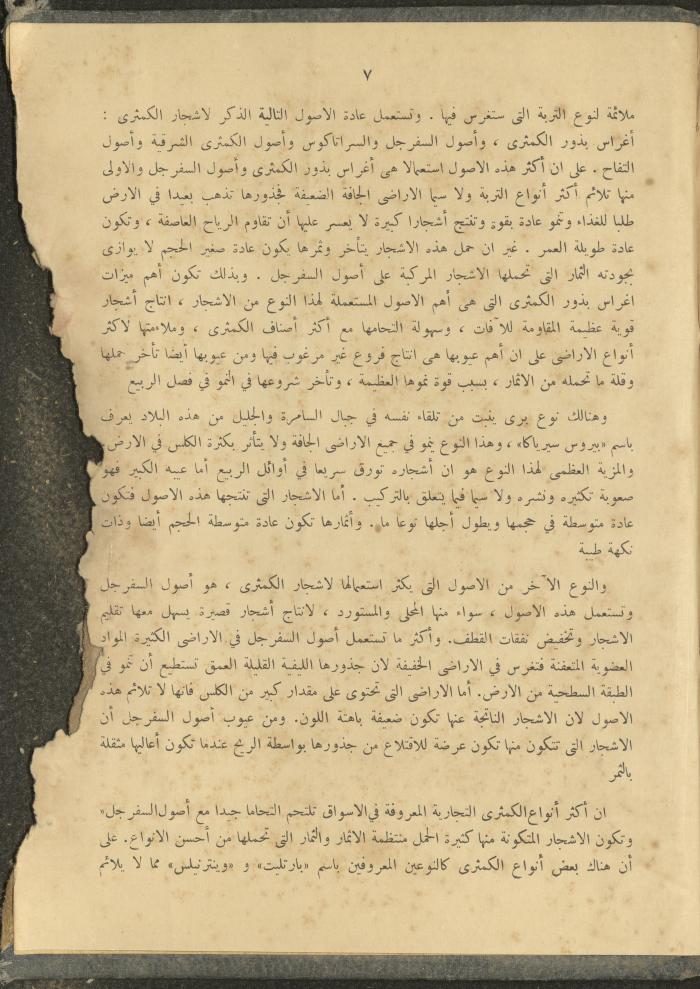 ٧
ملائمة لنوع التربة التى ستغرس فيها . وتستعمل عادة الاصول التالية الذكر لاشجار الكمثرى :
أغراس بذور الكمثرى ، وأصول السفرجل والسراتاكوس وأصول الكمثرى الشرقية وأصول
التفاح . على ان أكثر هذه الاصول استعمالا هى أغراس بذور الكمثرى وأصول السفرجل والاولى
منها تلائم أكثر أنواع التربة ولا سيما الاراضى الجافة الضعيفة فجذورها تذهب بعيدا في الارض
طلبا للغذاء وتنمو عادة بقوة وتنتج أشجارا كبيرة لا يعسر عليها أن تقاوم الرياح العاصفة ، وتكون
عادة طويلة العمر . غير ان حمل هذه الاشجار يتأخر وثمرها يكون عادة صغير الحجم لا يوازى
بجودته الثمار التى تحملها الاشجار المركبة على أصول السفرجل . وبذلك تكون أهم ميزات
اغراس بذور الكمثرى التى هى أهم الاصول المستعملة لهذا النوع من الاشجار ، انتاج أشجار
قوية عظيمة المقاومة للآفات ، وسهولة التحامها مع أكثر أصناف الكمثرى ، وملاءمتها لاكثر
أنواع الاراضى على ان أهم عيوبها هى انتاج فروع غير مرغوب فيها ومن عيوبها أيضا تأخر حملها
وقلة ما تحمله من الاثمار ، بسبب قوة نموها العظيمة ، وتأخر شروعها في النمو في فصل الربيع
وهنالك نوع برى ينبت من تلقاء نفسه في جبال السامرة والجليل من هذه البلاد يعرف
باسم «بيروس سيرياكا» ، وهذا النوع ينمو في جميع الاراضى الجافة ولا يتأثر بكثرة الكلس في الارض.
والمزية العظمى لهذا النوع هو ان أشجاره تورق سريعا في أوائل الربيع أما عيبه الكبير فهو
صعوبة تكثيره ونشره ولا سيما فيما يتعلق بالتركيب . أما الاشجار التى تنتجها هذه الاصول فتكون
عادة متوسطة في حجمها ويطول أجلها نوعا ما . وأثمارها تكون عادة متوسطة الحجم أيضا وذات
نكهة طيبة
والنوع الآخر من الاصول التى يكثر استعمالها لاشجار الكمثرى ، هو أصول السفرجل
وتستعمل هذه الاصول ، سواء منها المحلى والمستورد ، لانتاج أشجار قصيرة يسهل معها تقليم
الاشجار وتخفيض نفقات القطف. وأكثر ما تستعمل أصول السفرجل في الاراضى الكثيرة المواد
العضوية المتعفنة فتغرس في الاراضى الخفيفة لان جذورها الليفية القليلة العمق تستطيع أن تنمو في
الطبقة السطحية من الارض. أما الاراضى التى تحتوى على مقدار كبير من الكلس فانها لا تلائم هذه
الاصول لان الاشجار الناتجة عنها تكون ضعيفة باهتة اللون. ومن عيوب أصول السفرجل أن
الاشجار التى تتكون منها تكون عرضة للاقتلاع من جذورها بواسطة الريح عندما تكون أعاليها مثقلة
بالثمر
ان أكثر أنواع الكمثرى التجارية المعروفة في الاسواق تلتحم التحاما جيدا مع أصول السفرجل"
وتكون الاشجار المتكونة منها كثيرة الحمل منتظمة الاثمار والثمار التى تحملها من أحسن الانواع. على
أن هناك بعض أنواع الكمثرى كالنوعين المعروفين باسم «بارتليت» و «وينترنيلس» مما لا يلائم